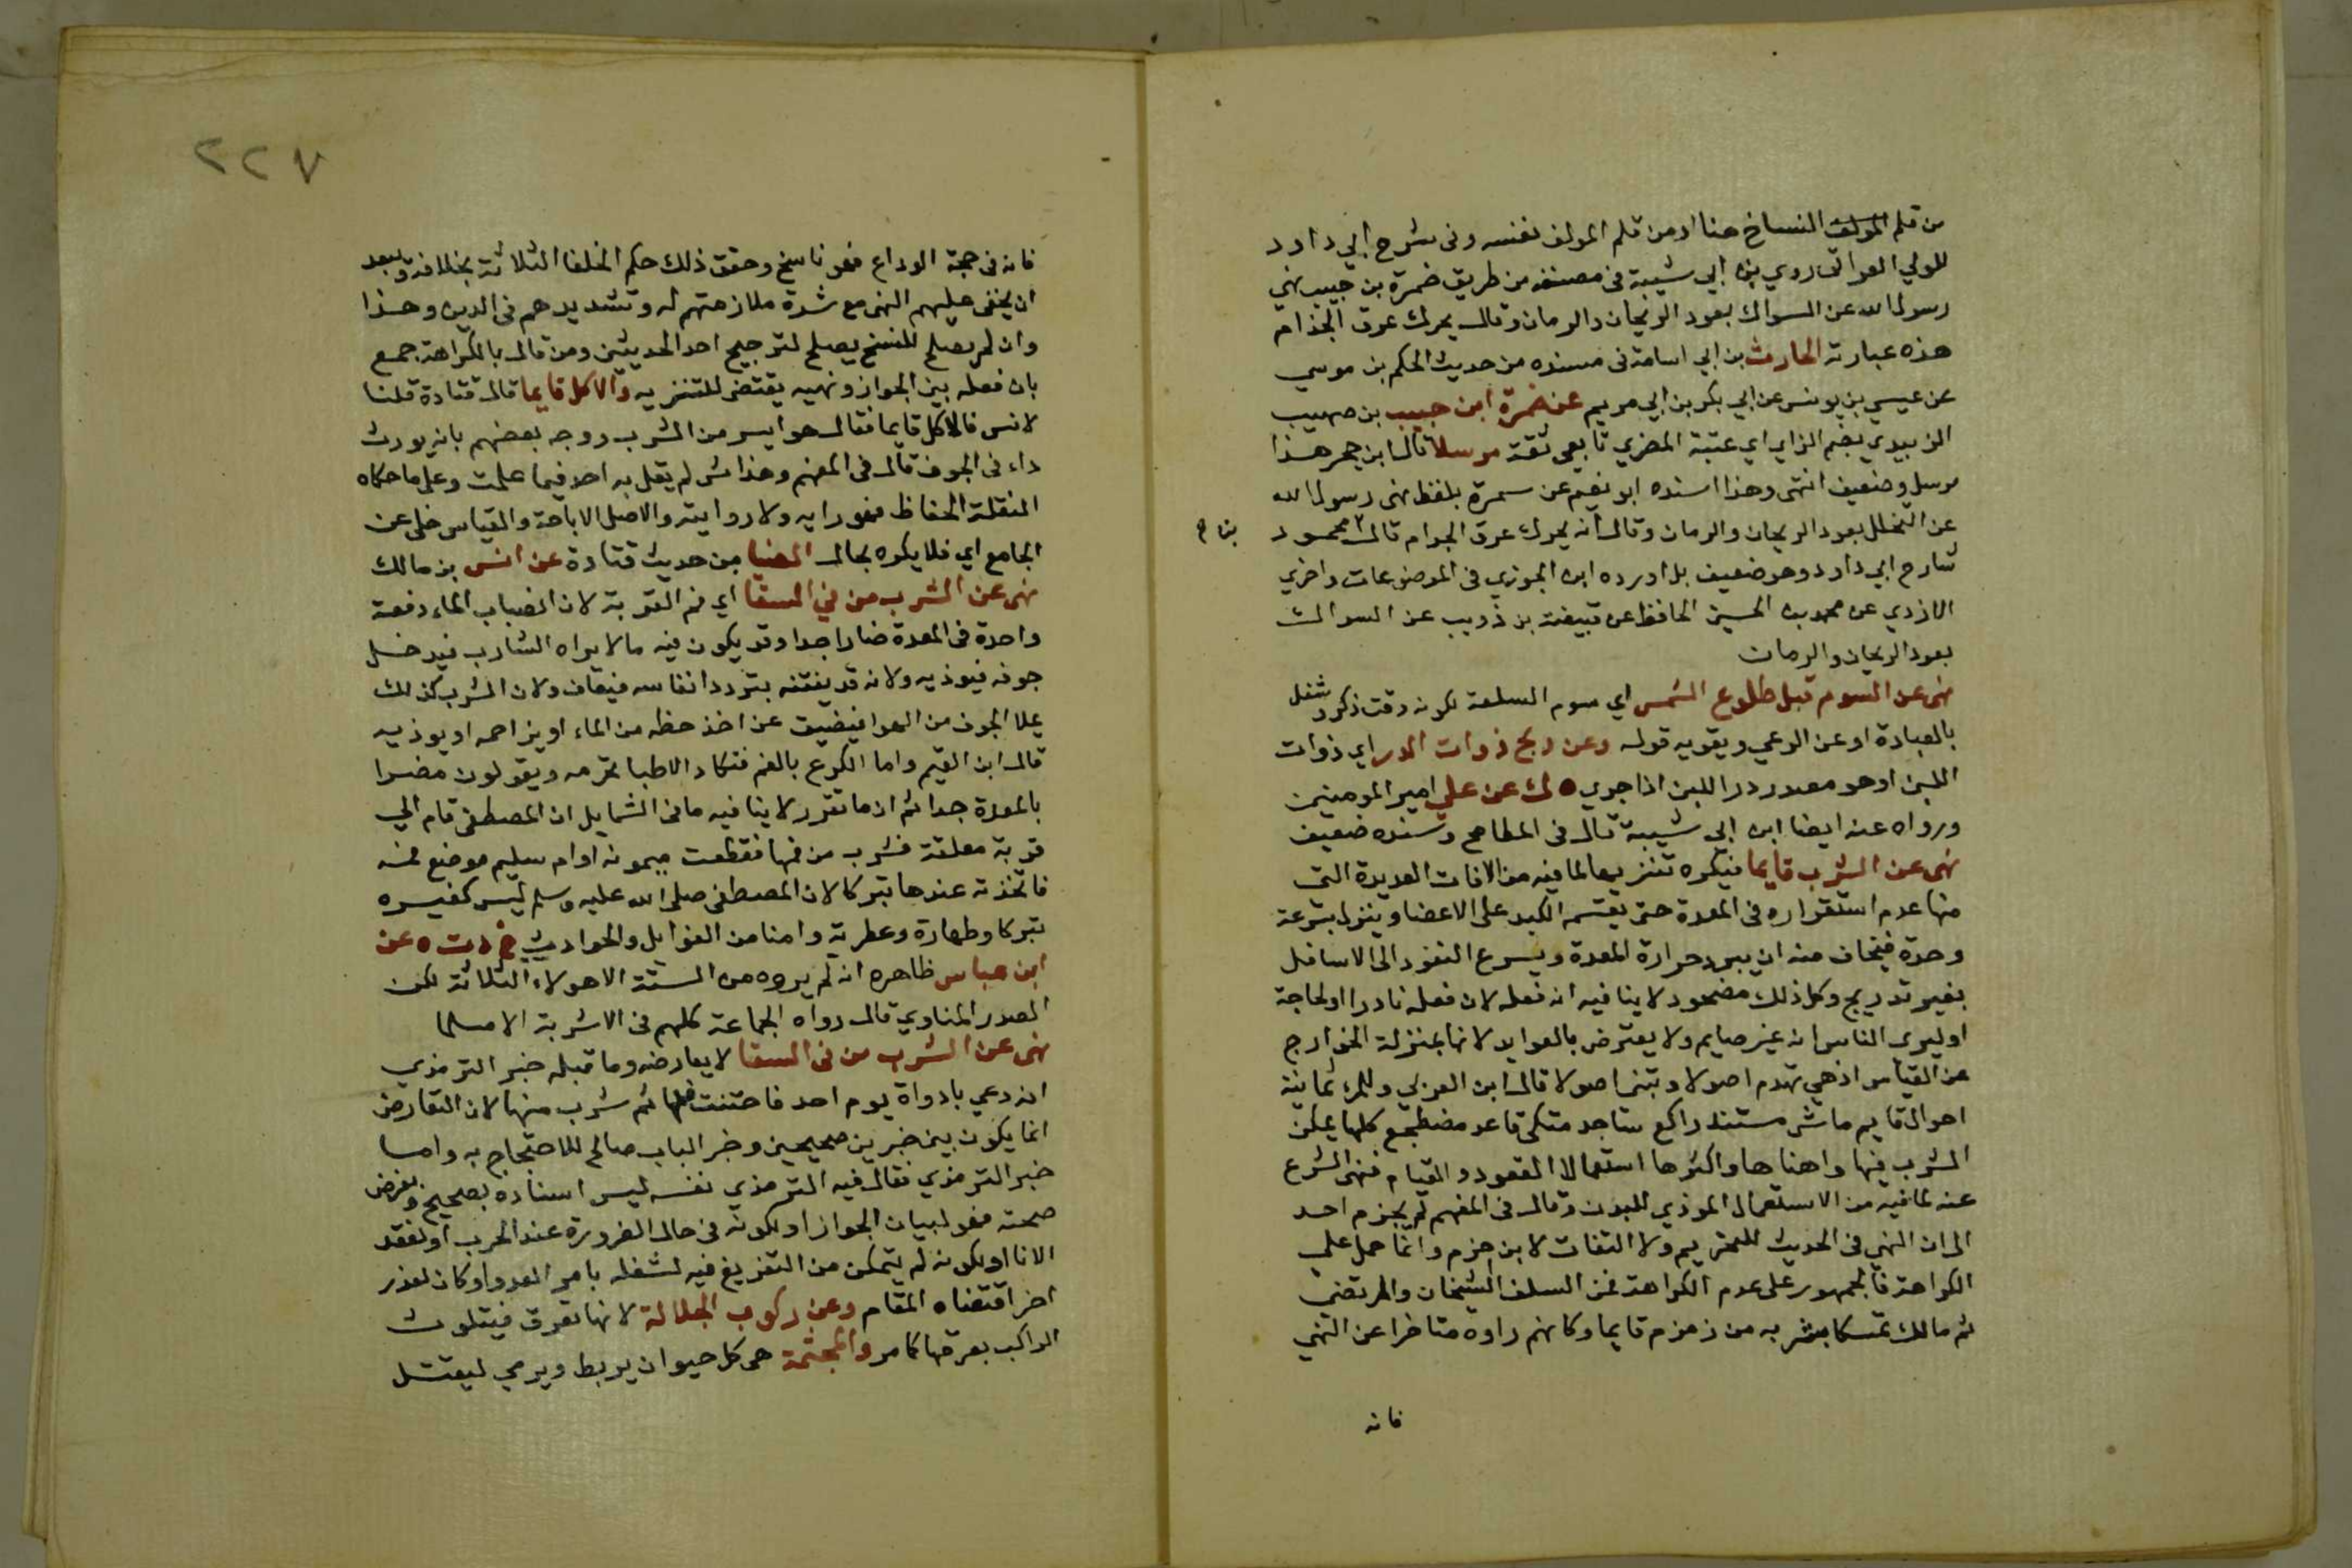 من قلم المولف النساخ هنا او من قلم المولف نفسه وفى شرح ابي داود
للولي العراقى روي بن ابي شيبة فى مصنفه من طريق ضمرة بن حبيب نهي
رسول الله عن السواك بعود الريحان والرمان وقال يحرك عرق الجذام
هذه عبارته الحارث بن ابي اسامة فى مسنده من حديث الحكم بن موسي
عن عيسي بن يونس عن ابي بكر بن ابي مريم عن ضمرة ابن حبيب بن صهيب
الزبيدي بضم الزاي اي عتبة المصري تابعي ثقة مرسلا قال ابن حجر هذا
مرسل وضعيف انتهى وهذا اسنده ابو نعيم عن سمرة بلفظ نهى رسول الله
عن التخلل بعود الريحان والرمان وقال انه يحرك عرق الجرام قال محمود
شارح ابي داود وهو ضعيف بل اورده ابن الجوزي فى الموضوعات واخرج
الازدي عن محمد بن الحسين الحافظ عن قبيصة بن ذويب عن السواك
بعود الريحان والرمان
نهى عن السوم قبل طلوع الشمس اي سوم السلعة لكونه وقت ذكر وشغل
بالعبادة او عن الرعي ويقويه قوله وعن ذبح ذوات الدر اي ذوات
اللبن او هو مصدر در اللبن اذا جري ه ك عن علي امير المومنين
ورواه عنه ايضا ابن ابي شيبة قال فى المطامح وسنده ضعيف
نهى عن الشرب قايما فيكره تنزيها لما فيه من الافات العديدة التى
منها عدم استقراره فى المعدة حتى يقسمه الكبد على الاعضا وينزل بسرعة
وحدة فيخاف منه ان يبرد حرارة المعدة ويسرع النفوذ الى الاسافل
بغير تدريج وكل ذلك مضر ولا ينافيه انه فعله لان فعله نادرا او لحاجة
او ليرى الناس انه غير صايم ولا يعترض بالعوايد لانها بمنزلة الخوارج
عن القياس اذ هي تهدم اصولا وتبنى اصولا قال ابن العربي وللمرء ثمانية
احوال قايم ماش مستند راكع ساجد متكي قاعد مضطجع كلها يمكن
الشرب فيها واهناها واكثرها استعمالا القعود والقيام فنهى الشرع
عنه لما فيه من الاستعمال الموذي للبدن وقال فى المفهم لم يجزم احد
الى ان النهي فى الحديث للتحريم ولا التفات لابن حزم وانما حمل على
الكراهة فالجمهور على عدم الكراهة فمن السلف الشيخان والمرتضى
ثم مالك تمسكا بشربه من زمزم قايما وكانهم راوه متاخرا عن النهي
فانه
٢٢٧
فانه فى حجة الوداع فهو ناسخ وحقق ذلك حكم الخلفا الثلاثة بخلافه ويبعد
ان يخفى عليهم النهى مع شدة ملازمتهم له وتشديدهم فى الدين وهذا
وان لم يصلح للنسخ يصلح لترجيح احد الحديثين ومن قال بالكراهة جمع
بان فعله بين الجواز ونهيه يقتضى للتنزيه والاكل قايما قال قتادة قلنا
لانس فالاكل قايما فقال هو ايسر من الشرب ووجه بعضهم بانه يورث
داء فى الجوف قال فى المفهم وهذا شي لم يقل به احد فيما علمت وعلى ما حكاه
النقلة الحفاظ فهو رايه ولا روايته والاصل الاباحة والقياس خلى عن
الجامع اي فلا يكره بحال الضيا من حديث قتادة عن انس بن مالك
نهى عن الشرب من في السقا اي فم القربة لان انصباب الماء دفعة
واحدة فى المعدة ضارا جدا وقد يكون فيه ما لا يراه الشارب فيدخل
جوفه فيوذيه ولانه قد ينتنه بتردد انفاسه فيعاف ولان الشرب كذلك
يملا الجوف من الهوا فيضيق عن اخذ حظه من الماء او يزاحمه او يوذيه
قال ابن القيم واما الكرع بالفم فتكاد الاطبا تحرمه ويقولون مضرا
بالمعدة جدا ثم ان ما تقرر لا ينافيه ما فى الشمايل ان المصطفى قام الي
قربة معلقة فشرب من فمها فقطعت ميمونه او ام سليم موضع فمه
فاتخذته عندها تبركا لان المصطفى صلى الله عليه وسلم ليس كغيره
تبركا وطهارة وعطرية وامنا من الغوايل والحوادث خ د ت ه عن
ابن عباس ظاهره انه لم يروه من الستة الا هولاء الثلاثة لكن
الصدر المناوي قال رواه الجماعة كلهم فى الاشربة الا مسلما
نهى عن الشرب من فى السقا لا يعارضه وما قبله خبر الترمذي
انه دعي باداوة يوم احد فاختنث فمها ثم شرب منها لان التعارض
انما يكون بين خبرين صحيحين وخبر الباب صالح للاحتجاج به واما
خبر الترمذي فقال فيه الترمذي نفسه ليس اسناده بصحيح وبفرض
صحته فهو لبيان الجواز او لكونه فى حال الضرورة عند الحرب او لفقد
الانا او لكونه لم يتمكن من التفريغ فيه لشغله بامر العدو او كان لعذر
اخر اقتضاه المقام وعن ركوب الجلالة لانها تعرق فيتلوث
الراكب بعرقها كما مر والمجثمة هى كل حيوان يربط ويرمي ليقتل